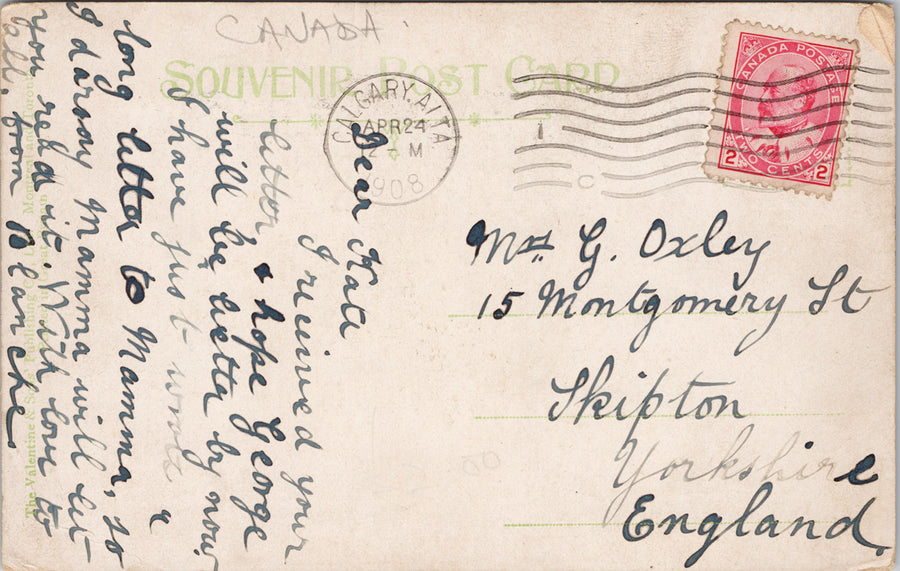 CANADA.
SOUVENIR POST CARD
CALGARY, ALTA
APR 24
M
1908
CANADA POSTAGE
2 2
TWO CENTS
Dear Kate
I received your
letter & hope George
will be better by now
I have just wrote a
long letter to Mamma, so
I darsay Mamma will let
you read it. With love to
all, from Blanche
Mrs G. Oxley
15 Montgomery St
Skipton
Yorkshire
England.
The Valentine & Sons Publishing Co. Ltd. Montreal and Toronto